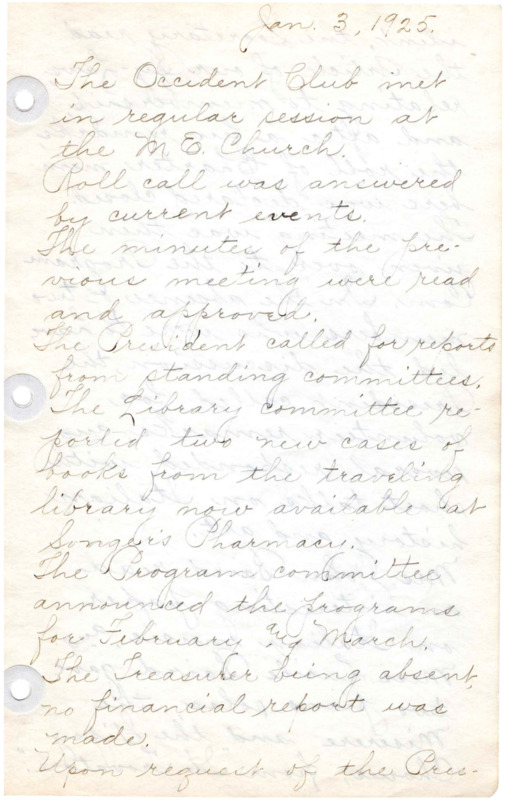 Jan. 3, 1925.
The Occident Club met
in regular session at
the M. E. Church.
Roll call was answered
by current events.
The minutes of the pre-
vious meeting were read
and approved.
The President called for reports
from standing committees.
The Library committee re-
ported two new cases of
books from the traveling
library now available at
Songer's Pharmacy.
The Program committee
announced the programs
for February and March.
The Treasurer being absent,
no financial report was
made.
Upon request of the Pres-